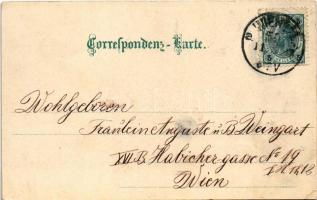 Correspondenz-Karte.
Wohlgeboren
Fräulein Auguste u B Weingart
XVI/B Habichergasse No 19
Wien